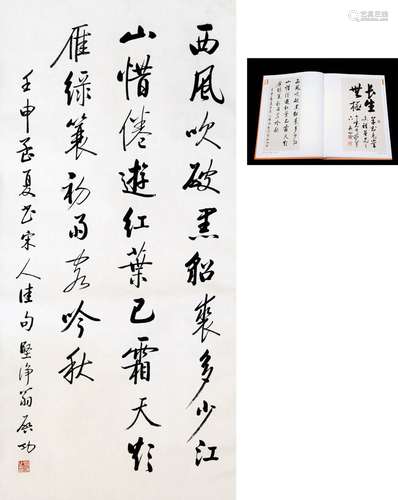 西風吹破黑貂裘多少江
山惜倦遊紅葉已霜天欲
雁綠蓑初雨客吟秋
壬申孟夏書宋人佳句 堅淨翁啟功
長生
世極